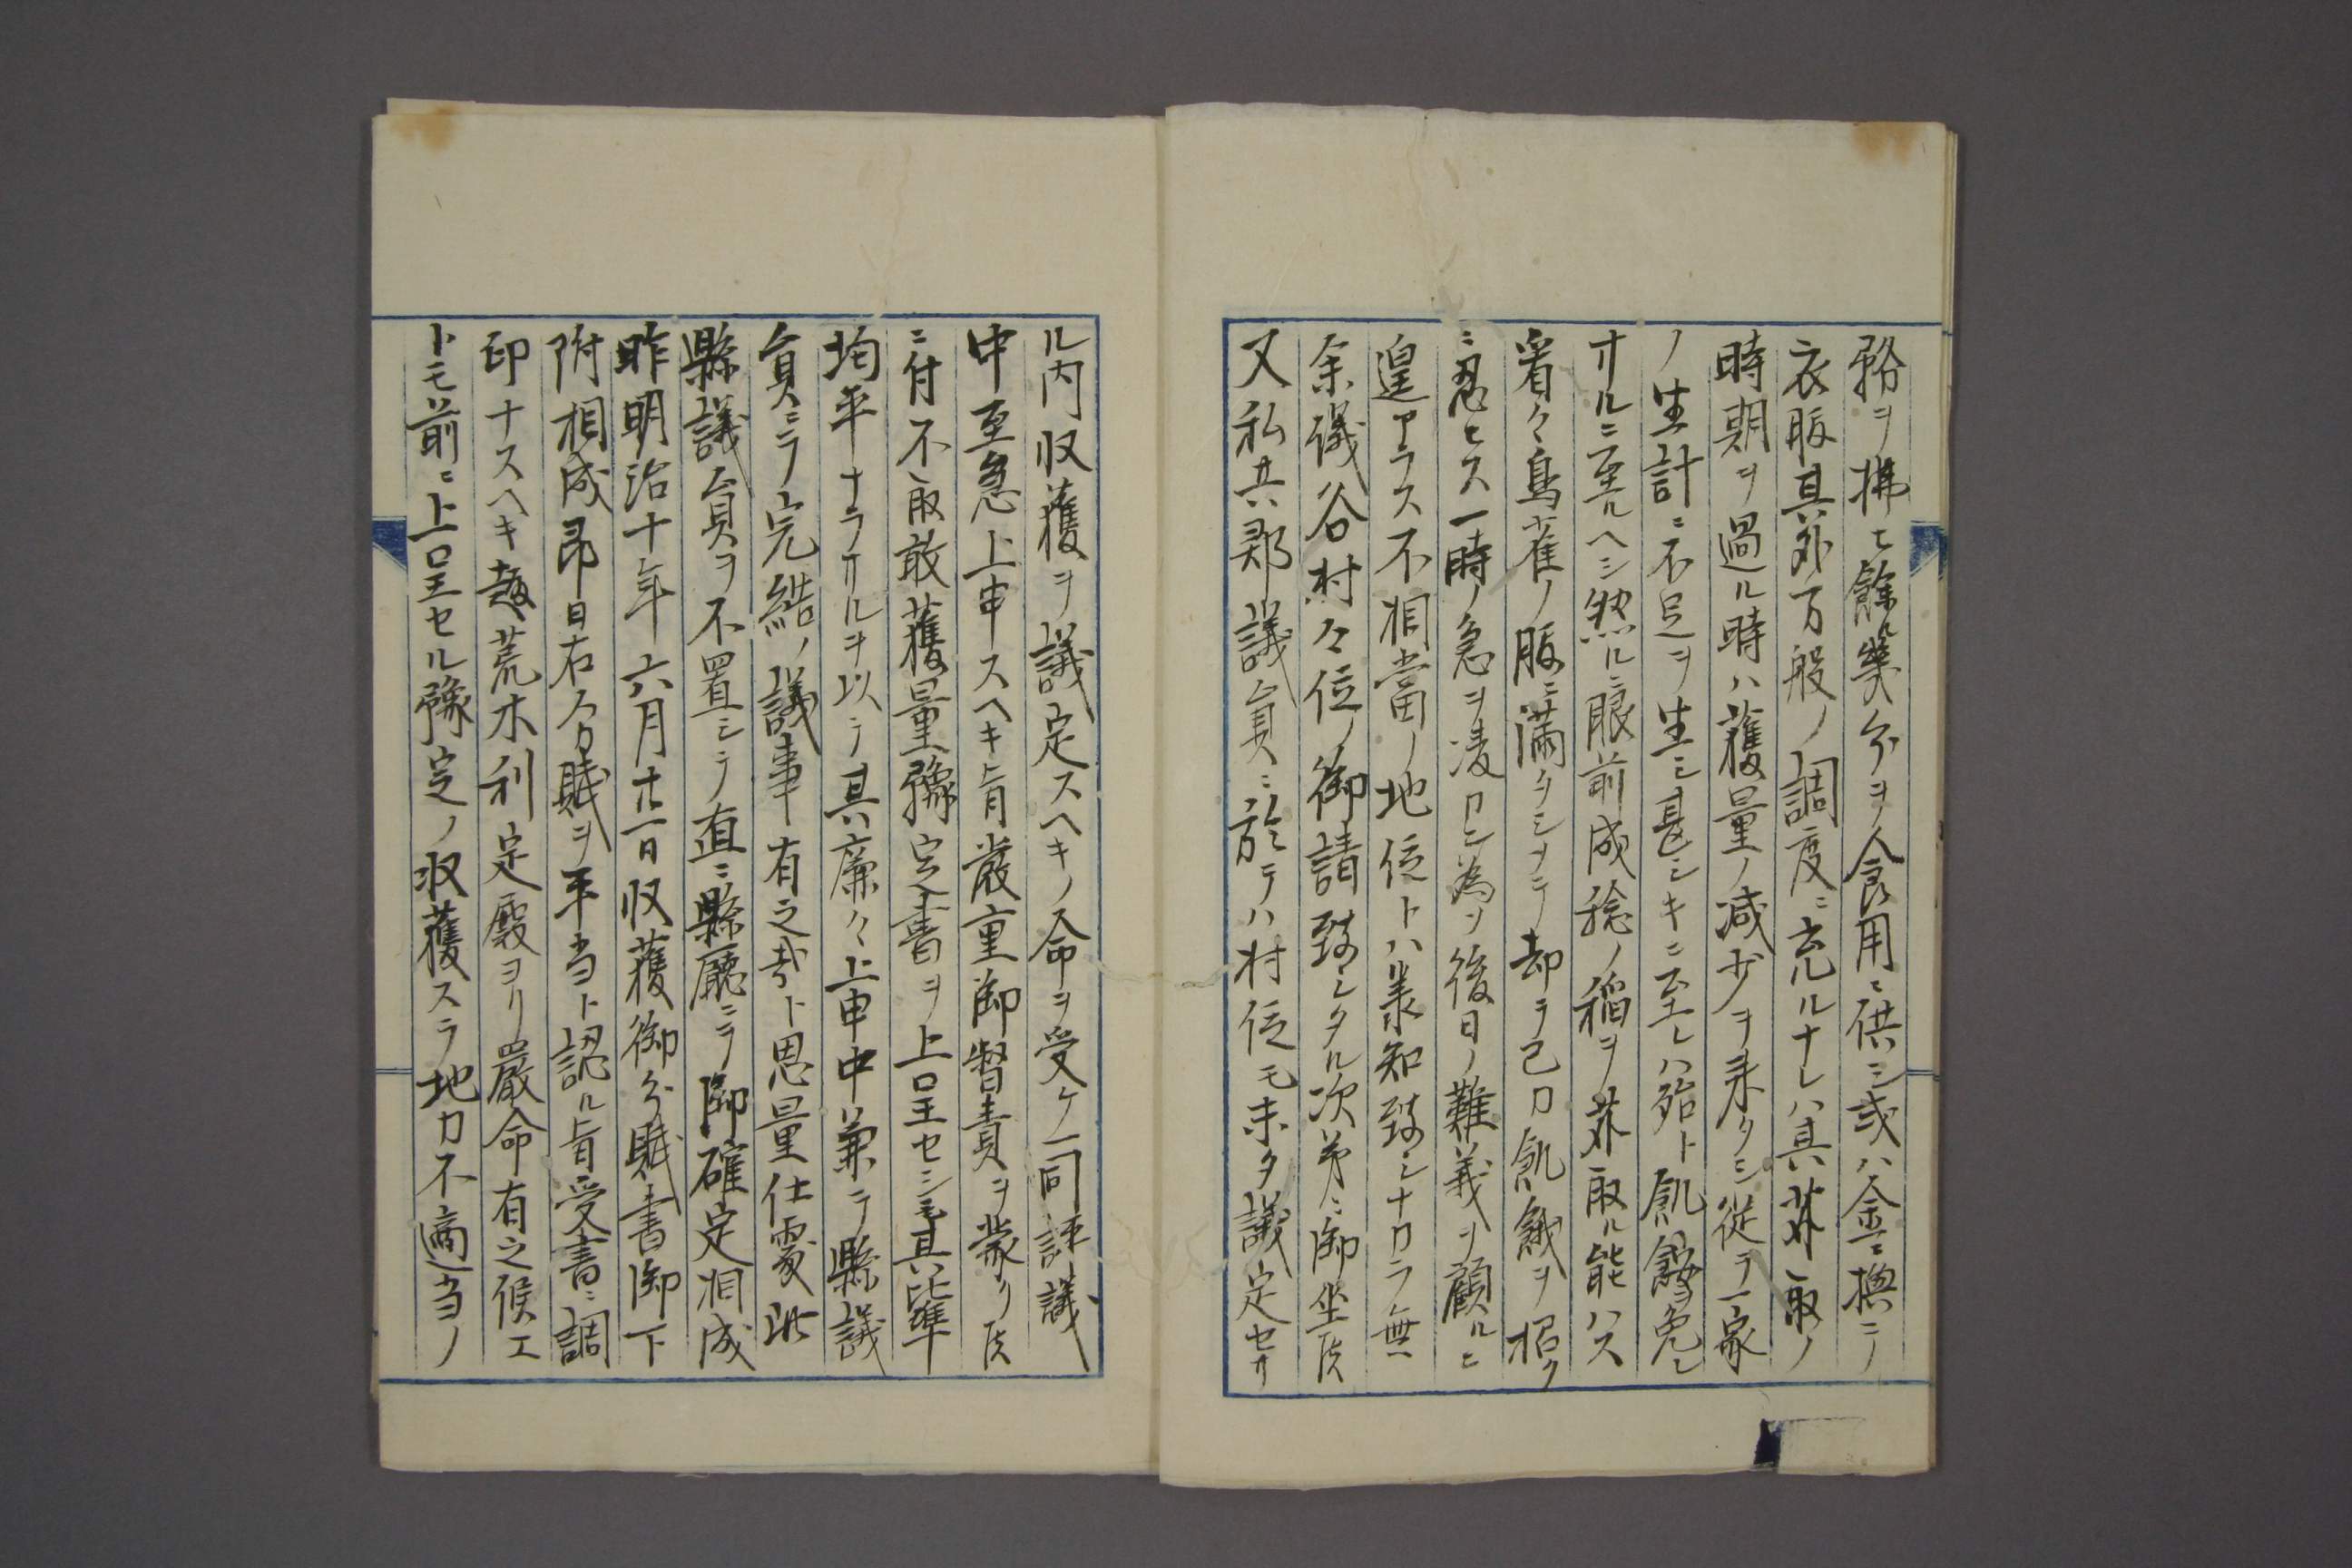 務ヲ拂ヒ餘ル幾分ヲ食用ニ供シ或ハ金ニ換ヘ
衣服其外万般ノ調度ニ充ルナレハ其苅取ノ
時期ヲ過ル時ハ獲量ノ減少ヲ来タシ従テ一家
ノ生計ニ不足ヲ生シ甚シキニ至レハ殆ト飢餓免レ
サルニ至ルヘシ然ルニ眼前成稔ノ稲ヲ苅取ル能ハス
看々鳥雀ノ腹ニ満タシメテ却テ己カ飢餓ヲ招ク
ニ忍ヒス一時ノ急ヲ凌カン為メ後日ノ難義ヲ顧ルニ
遑アラス不相當ノ地位トハ業知致シナカラ無
余儀谷村々位ノ御請致シタル次第ニ御坐候
又私共郡議員ニ於テハ村位モ未タ議定セサ
ル内収獲ヲ議定スヘキノ命ヲ受ケ一同評議
中至急上申スヘキ旨厳重御督責ヲ蒙リ候
ニ付不取敢獲量豫定書ヲ上呈セシモ其比準
均平ナラサルヲ以テ其廉々上申中兼テ縣議
員ニテ完結ノ議事有之哉ト思量仕處此
縣議員ヲ不置シテ直ニ縣廳ニテ御確定相成
昨明治十年六月廿一日収獲御分賦書御下
附相成昂日右分賦ヲ平当ト認ル旨受書ニ調
印ナスヘキ趣荒木利定殿ヨリ嚴命有之候エ
トモ前ニ上呈セル豫定ノ収獲スラ地力不適当ノ